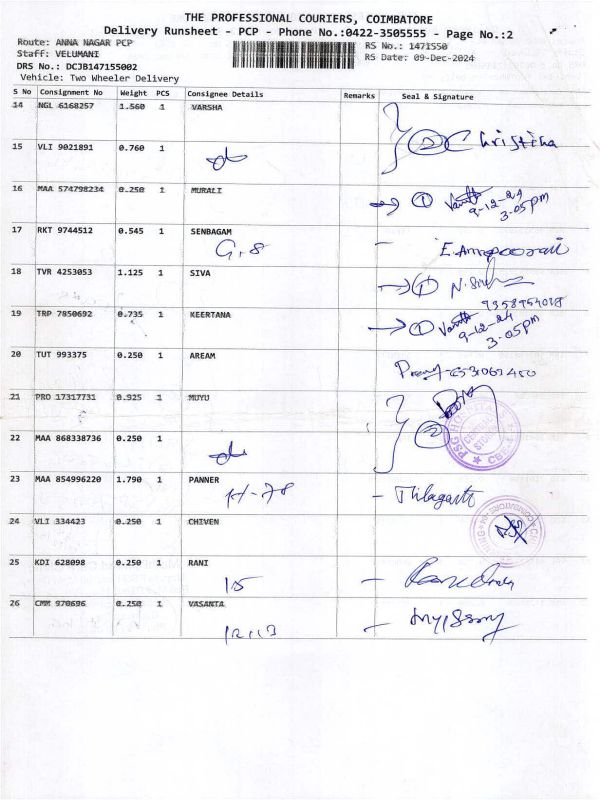 THE PROFESSIONAL COURIERS, COIMBATORE
Delivery Runsheet - PCP - Phone No.:0422-3505555 - Page No.:2
Route: ANNA NAGAR PCP
RS No.: 1471550
Staff: VELUMANI
RS Date: 09-Dec-2024
DRS No.: DCJB147155002
Vehicle: Two Wheeler Delivery
S No Consignment No Weight PCS Consignee Details Remarks Seal & Signature
14 NGL 6168257 1.560 1 VARSHA
2 Christina
15 VLI 9021891 0.760 1
16 MAA 574798234 0.250 1 MURALI
1 9-12-24
3.05pm
17 RKT 9744512 0.545 1 SENBAGAM
G.8 -
18 TVR 4253053 1.125 1 SIVA
1
19 TRP 7850692 0.735 1 KEERTANA
1 9-12-24
3.05pm
20 TUT 993375 0.250 1 AREAM
21 PRO 17317731 0.925 1 MUYU
2
22 MAA 868338736 0.250 1
23 MAA 854996220 1.790 1 PANNER
24 VLI 334423 0.250 1 CHIVEN
25 KDI 628098 0.250 1 RANI
15 -
26 CMM 970696 0.250 1 VASANTA